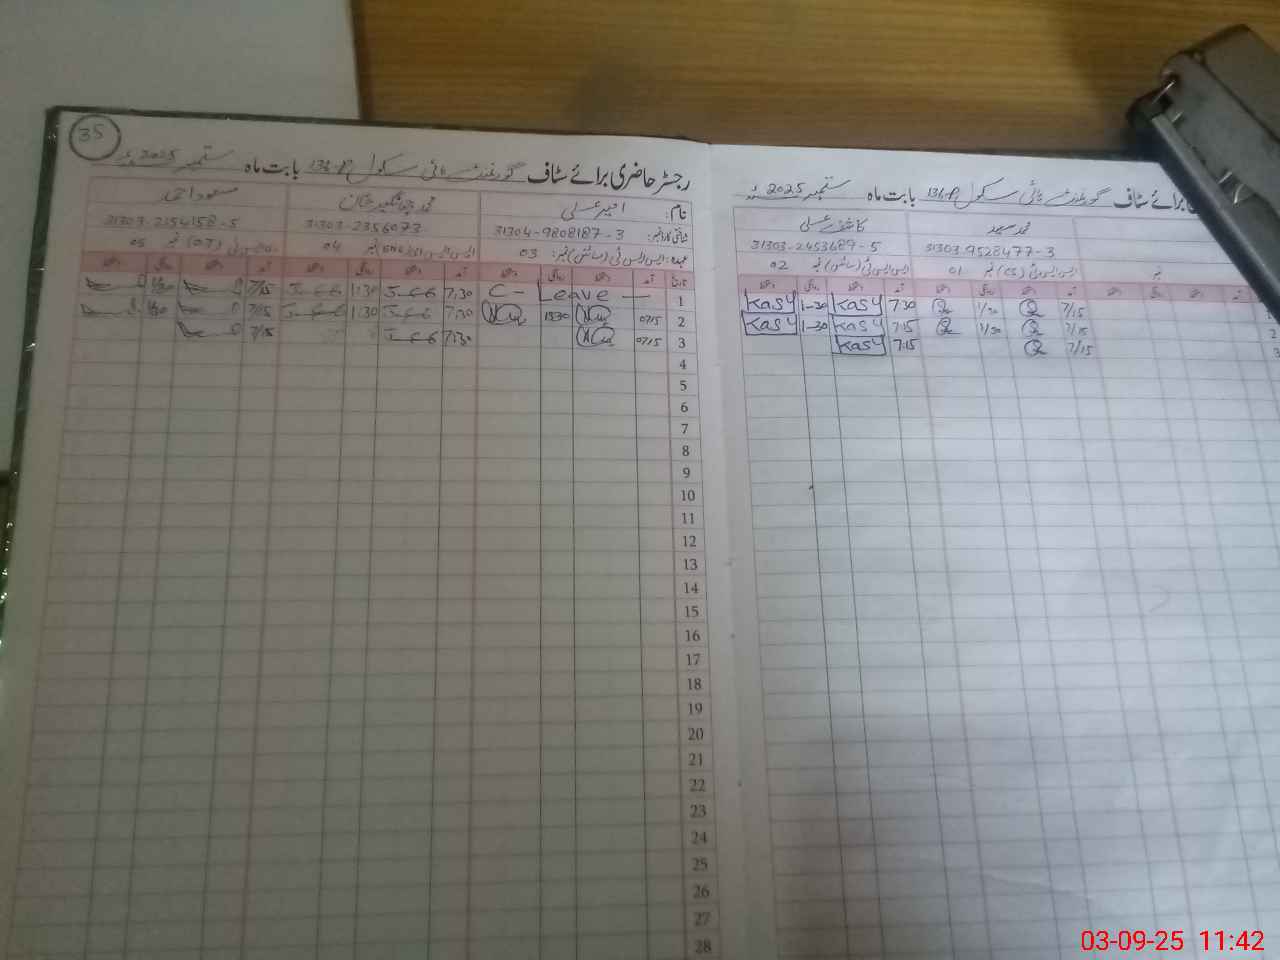 35
رجسٹر حاضری برائے سٹاف گورنمنٹ ہائی سکول 136-P بابت ماہ ستمبر 2025ء
نام: امیر علی
مسعود احمد
شناختی کارڈ نمبر: 31304-9808187-3
31303-2356073
31303-2154158-5
عہدہ: ایس ایس ٹی (سائنس) نمبر: 03
04
05
تاریخ آمد دستخط روانگی دستخط آمد دستخط روانگی دستخط آمد دستخط روانگی دستخط
1 C- Leave 7:30 1:30 7/15 1/30
2 0715 1330 7:30 1:30 7/15 1/30
3 0715 7:30 7/15
4
5
6
7
8
9
10
11
12
13
14
15
16
17
18
19
20
21
22
23
24
25
26
27
28
برائے سٹاف گورنمنٹ ہائی سکول 136-P بابت ماہ ستمبر 2025ء
محمد سعید
کاشف علی
31303-9528477-3
31303-2453689-5
ایس ایس ٹی (CS) نمبر 01
ایس ایس ٹی (سائنس) نمبر 02
آمد دستخط روانگی دستخط آمد دستخط روانگی دستخط آمد دستخط روانگی دستخط
7/15 1/30 7:30 Kasy 1-30 Kasy
7/15 1/30 7:15 Kasy 1-30 Kasy
7/15 7:15 Kasy
03-09-25 11:42